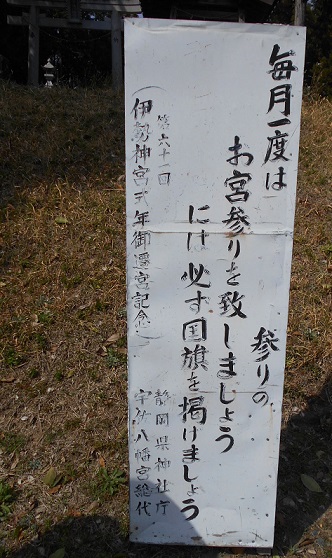 毎月一度は
お宮参りを致しましょう
参りの
には必ず国旗を掲げましょう
第六十一回
(伊勢神宮式年御遷宮記念)
静岡県神社庁
宇佐八幡宮総代